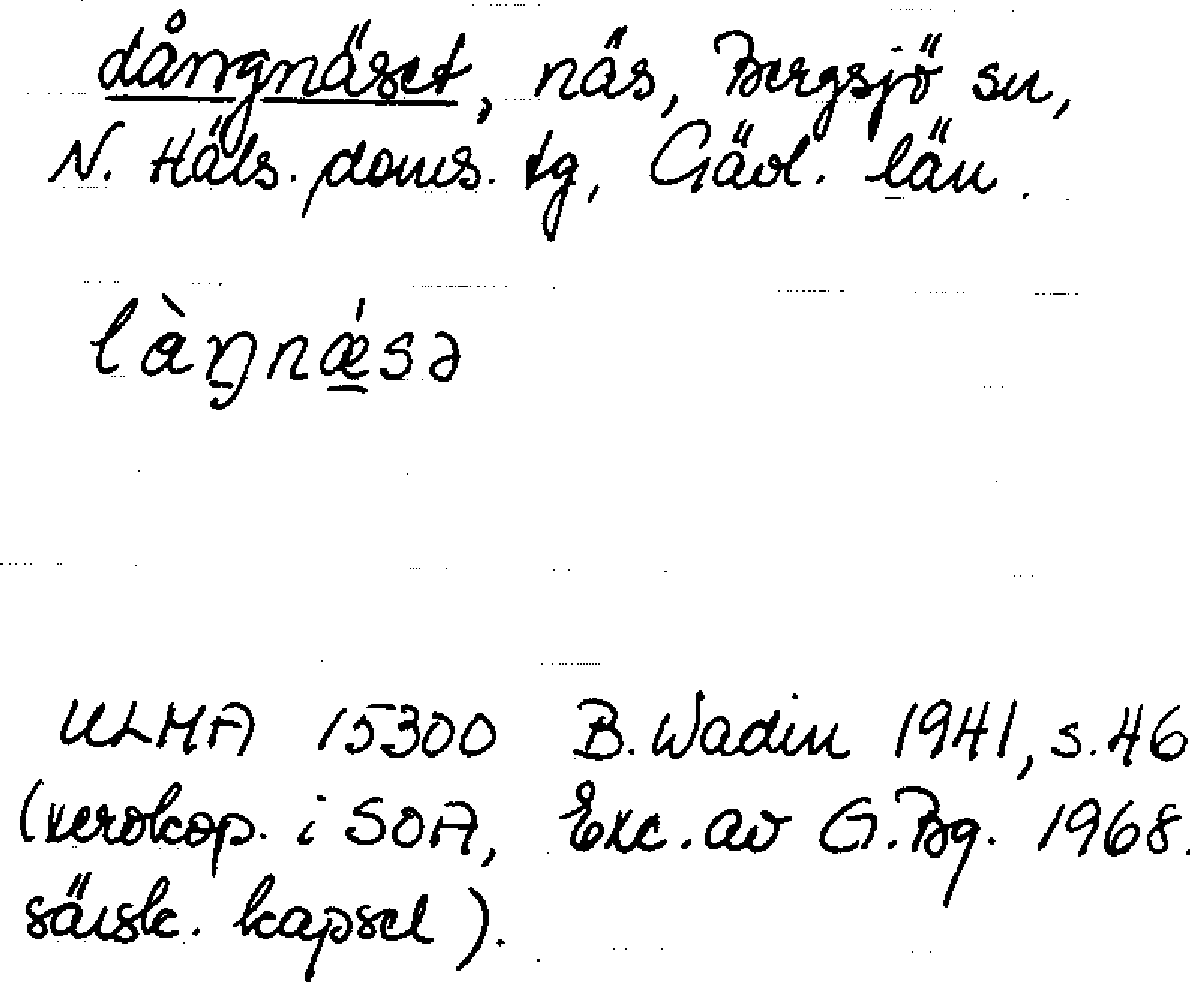 Långnäset, näs, Bergsjö sn,
N. Häls. doms. tg, Gävl. län.
làŋnǽsə
ULMA 15300 B. Wadin 1941, s. 46
(xerokop. i SOA, Exc. av G. Bg. 1968.
särsk. kapsel).